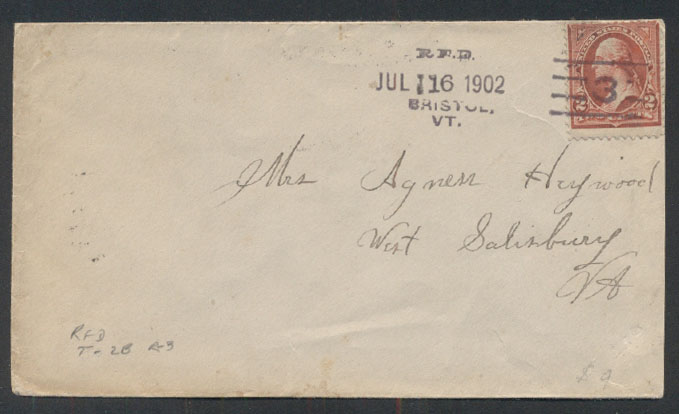 R.F.D.
JUL 16 1902
BRISTOL,
VT.
3
2 2
Mrs Agness Heywood
West Salisbury
Vt
RFD
T-2B A3
$9